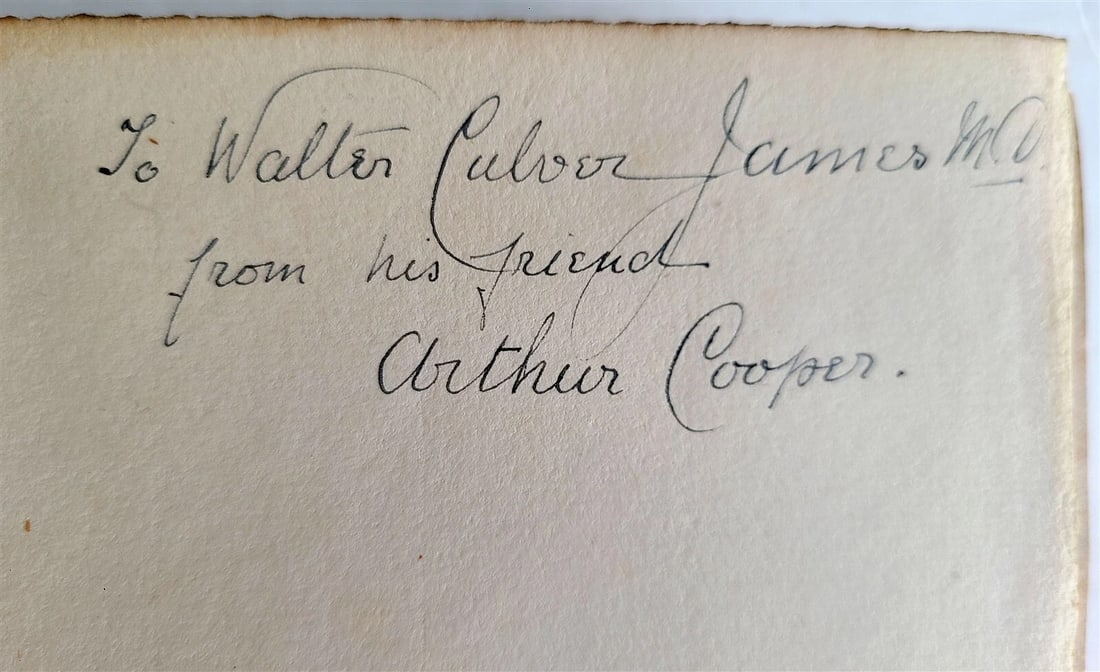 To Walter Culver James M.D.
from his friend
Arthur Cooper.